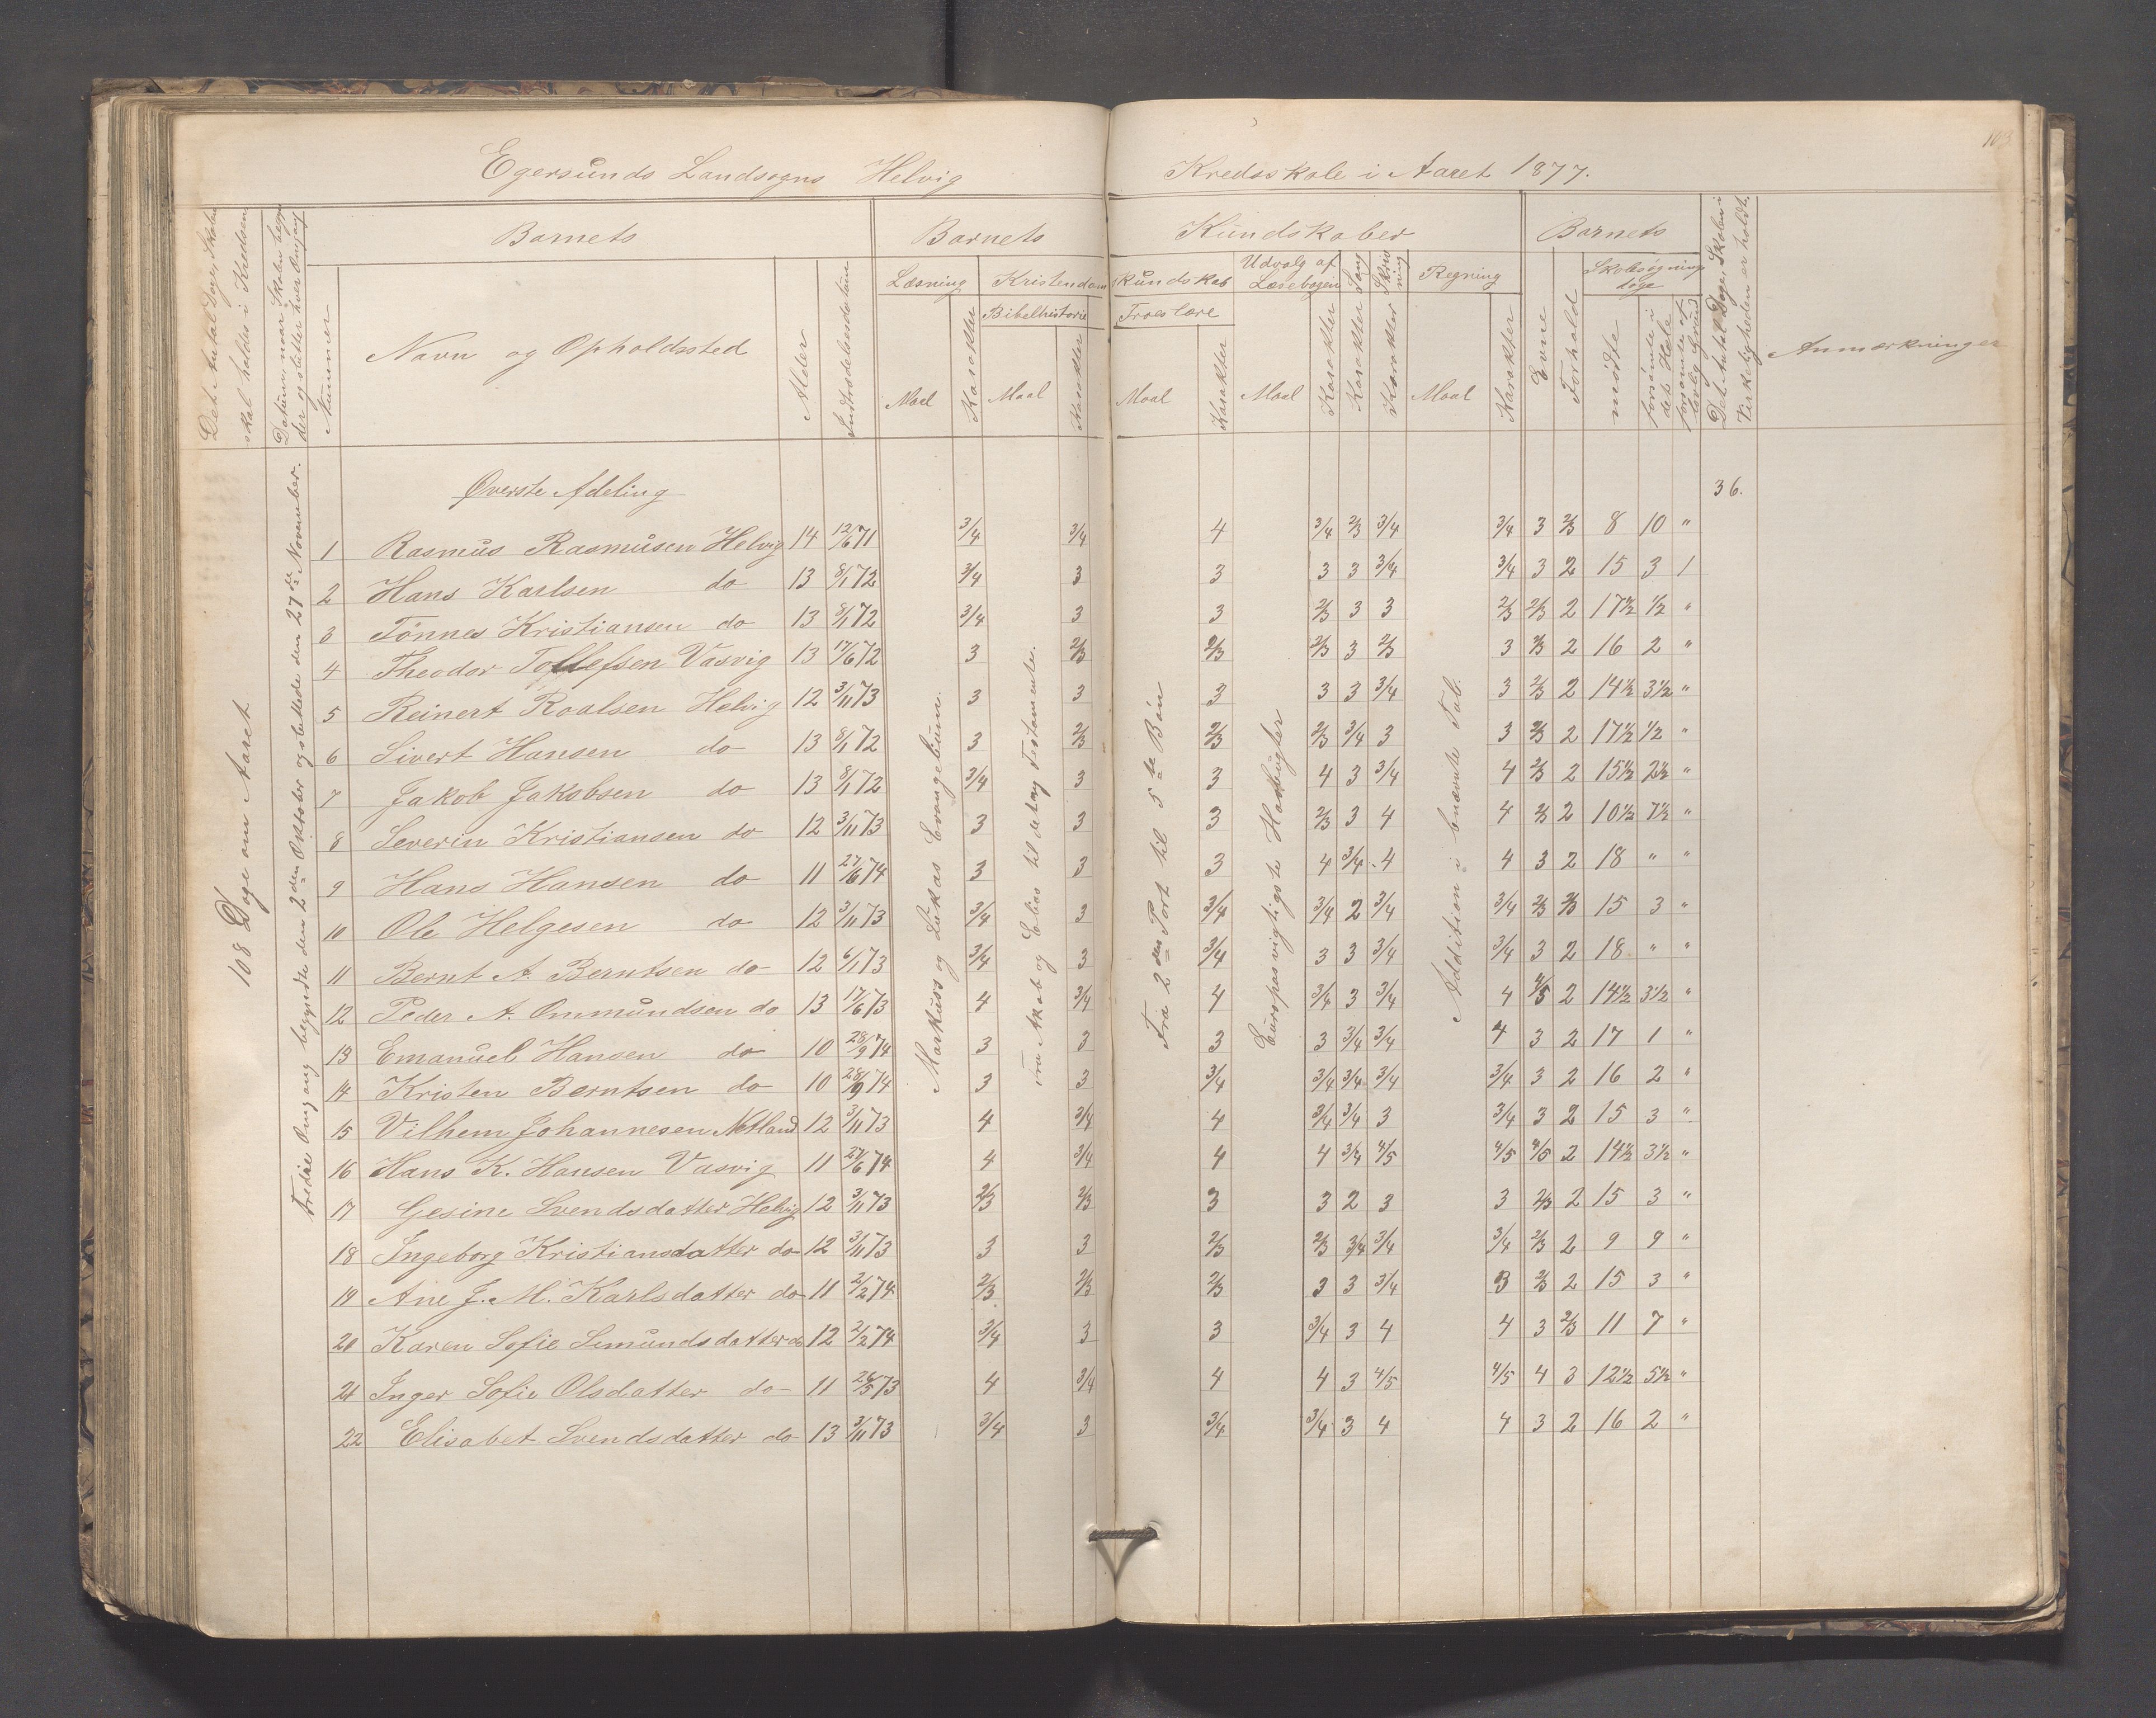 103
Egersunds Landsogns Helvig Kredsskole i Aaret 1877.
Det Antal Dage, Skolen skal holdes i Kredsen
Datum, naar Skolen begynder og slutter hver Omgang
Nummer
Barnets
Navn og Opholdssted
Alder
Indtrædelsesdatum
Barnets Kundskaber
Læsning
Maal
Karakter
Kristendomskundskab
Bibelhistorie
Maal
Karakter
Troeslære
Maal
Karakter
Udvalg af Læsebogen
Maal
Karakter
Sang
Karakter
Skrivning
Karakter
Regning
Maal
Karakter
Barnets
Evne
Forhold
Skolesøgningsdage
mødte
forsømte i det Hele
forsømte af lovlig Grund
Det Antal Dage, Skolen i Virkeligheden er holdt.
Anmærkninger
108 Dage om Aaret
tredie Omgang begyndte den 2den Oktober og sluttede den 27de November.
Markus's og Lukas Evangelium.
fra Akab og Elias til det ny Testamente.
Fra 2den Part til 5te Bøn
Europas vigtigste
Addition i benævnte Tal.
Øverste Afdeling
36.
1 Rasmus Rasmusen Helvig 14 12/6 71 3/4 3/4 4 3/4 2/3 3/4 3/4 3 2/3 8 10 "
2 Hans Karlsen do 13 8/1 72 3/4 3 3 3 3 3/4 3/4 3 2 15 3 1
3 Tønnes Kristiansen do 13 8/1 72 3/4 3 3 2/3 3 3 2/3 2/3 2 17 1/2 1/2 "
4 Theodor Tollefsen Vasvig 13 17/6 72 3 2/3 2/3 2/3 3 2/3 3 2/3 2 16 2 "
5 Reinert Roalsen Helvig 12 3/11 73 3 3 3 3 3 3/4 3 2/3 2 14 1/2 3 1/2 "
6 Sivert Hansen do 13 8/1 72 3 2/3 2/3 2/3 3/4 3 3 2/3 2 17 1/2 1/2 "
7 Jakob Jakobsen do 13 8/1 72 3/4 3 3 4 3 3/4 4 2/3 2 15 1/2 2 1/2 "
8 Severin Kristiansen do 12 3/11 73 3 3 3 2/3 3 4 4 2/3 2 10 1/2 7 1/2 "
9 Hans Hansen do 11 27/6 74 3 3 3 4 3/4 4 4 3 2 18 " "
10 Ole Helgesen do 12 3/11 73 3/4 3 3/4 3/4 2 3/4 3/4 2/3 2/3 15 3 "
11 Bernt A. Berntsen do 12 6/1 73 3/4 3 3/4 3 3 3/4 3/4 3 2 18 " "
12 Peder A. Ommundsen do 13 17/6 73 4 3/4 4 3/4 3 3/4 4 4/5 2 14 1/2 3 1/2 "
13 Emanuel Hansen do 10 28/9 74 3 3 3 3 3/4 3/4 4 3 2 17 1 "
14 Kristen Berntsen do 10 28/9 74 3 3 3/4 3/4 3/4 3/4 3/4 3 2 16 2 "
15 Vilhem Johannesen Netland 12 3/11 73 4 3/4 4 3/4 3/4 3 3/4 3 2 15 3 "
16 Hans K. Hansen Vasvig 11 27/6 74 4 3/4 4 4 3/4 4/5 4/5 4/5 2 14 1/2 3 1/2 "
17 Gesine Svendsdatter Helvig 12 3/11 73 2/3 2/3 3 3 2 3 3 2/3 2 15 3 "
18 Ingeborg Kristiansdatter do 12 3/11 73 3 3 2/3 2/3 3/4 3/4 3/4 2/3 2 9 9 "
19 Ane J. M. Karlsdatter do 11 2/2 74 2/3 2/3 2/3 3 3 3/4 3 2/3 2 15 3 "
20 Karen Sofie Semundsdatter do 12 2/2 74 3/4 3 3 3/4 3 4 4 3 2/3 11 7 "
21 Inger Sofie Olsdatter do 11 26/5 73 4 3/4 4 4 3 4/5 4/5 4 3 12 1/2 5 1/2 "
22 Elisabet Svendsdatter do 13 3/11 73 3/4 3 3/4 3/4 3 4 4 3 2 16 2 "